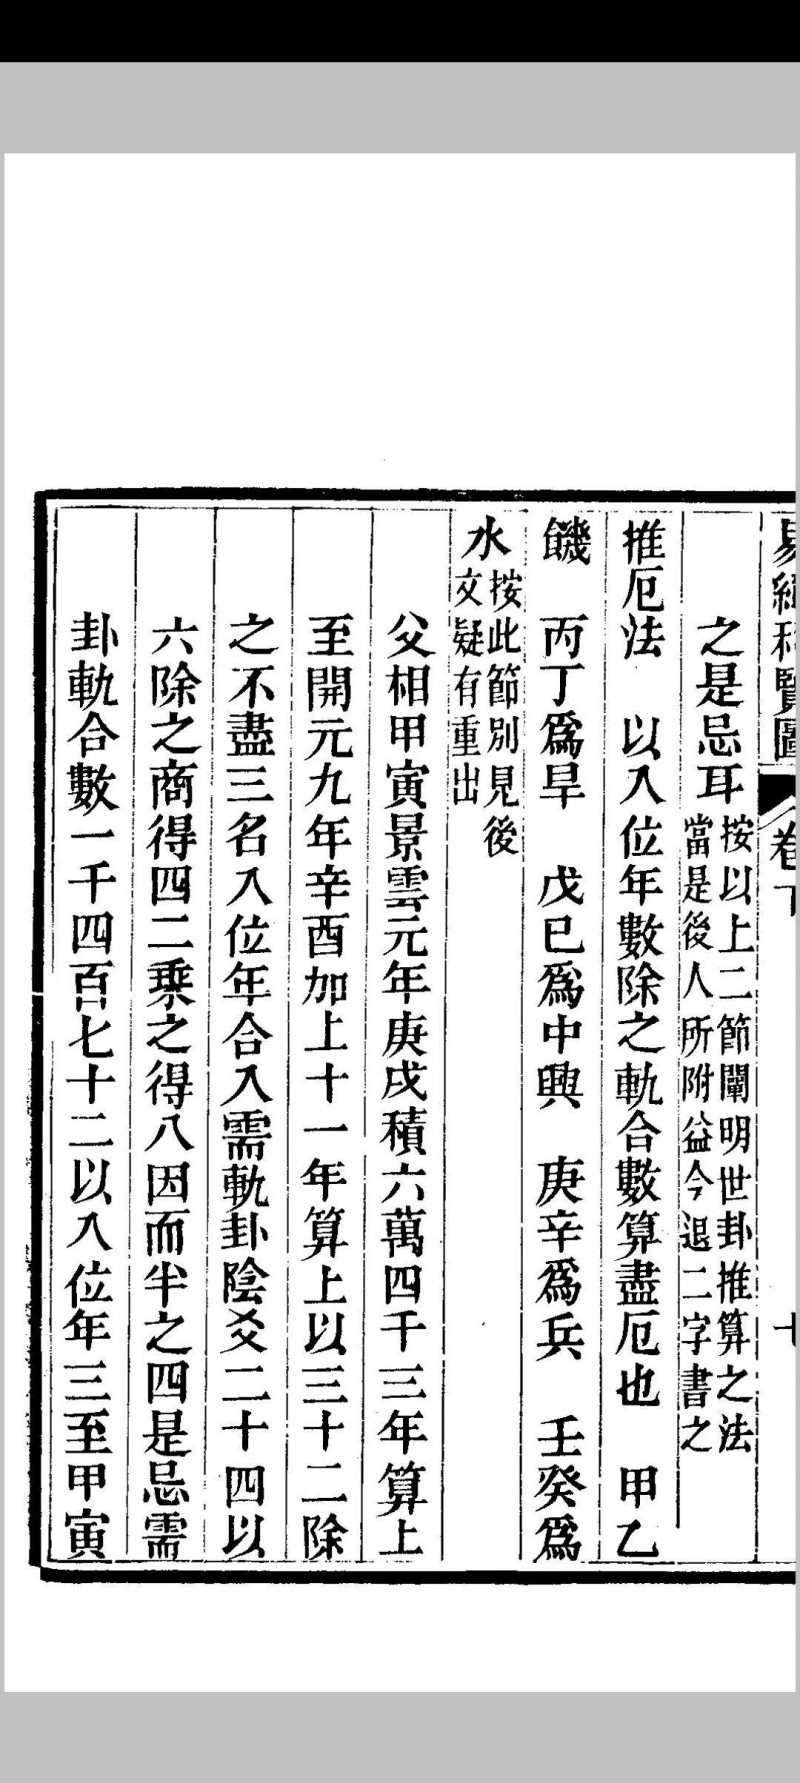 易緯稽覽圖 卷下 七
之是忌耳按以上二節闡明世卦推算之法
當是後人所附益今退二字書之
推厄法 以入位年數除之軌合數算盡厄也 甲乙
饑 丙丁爲旱 戊巳爲中興 庚辛爲兵 壬癸爲
水按此節別見後
文疑有重出
父相甲寅景雲元年庚戌積六萬四千三年算上
至開元九年辛酉加上十一年算上以三十二除
之不盡三名入位年合入需軌卦陰爻二十四以
六除之商得四二乘之得八因而半之四是忌需
卦軌合數一千四百七十二以入位年三至甲寅